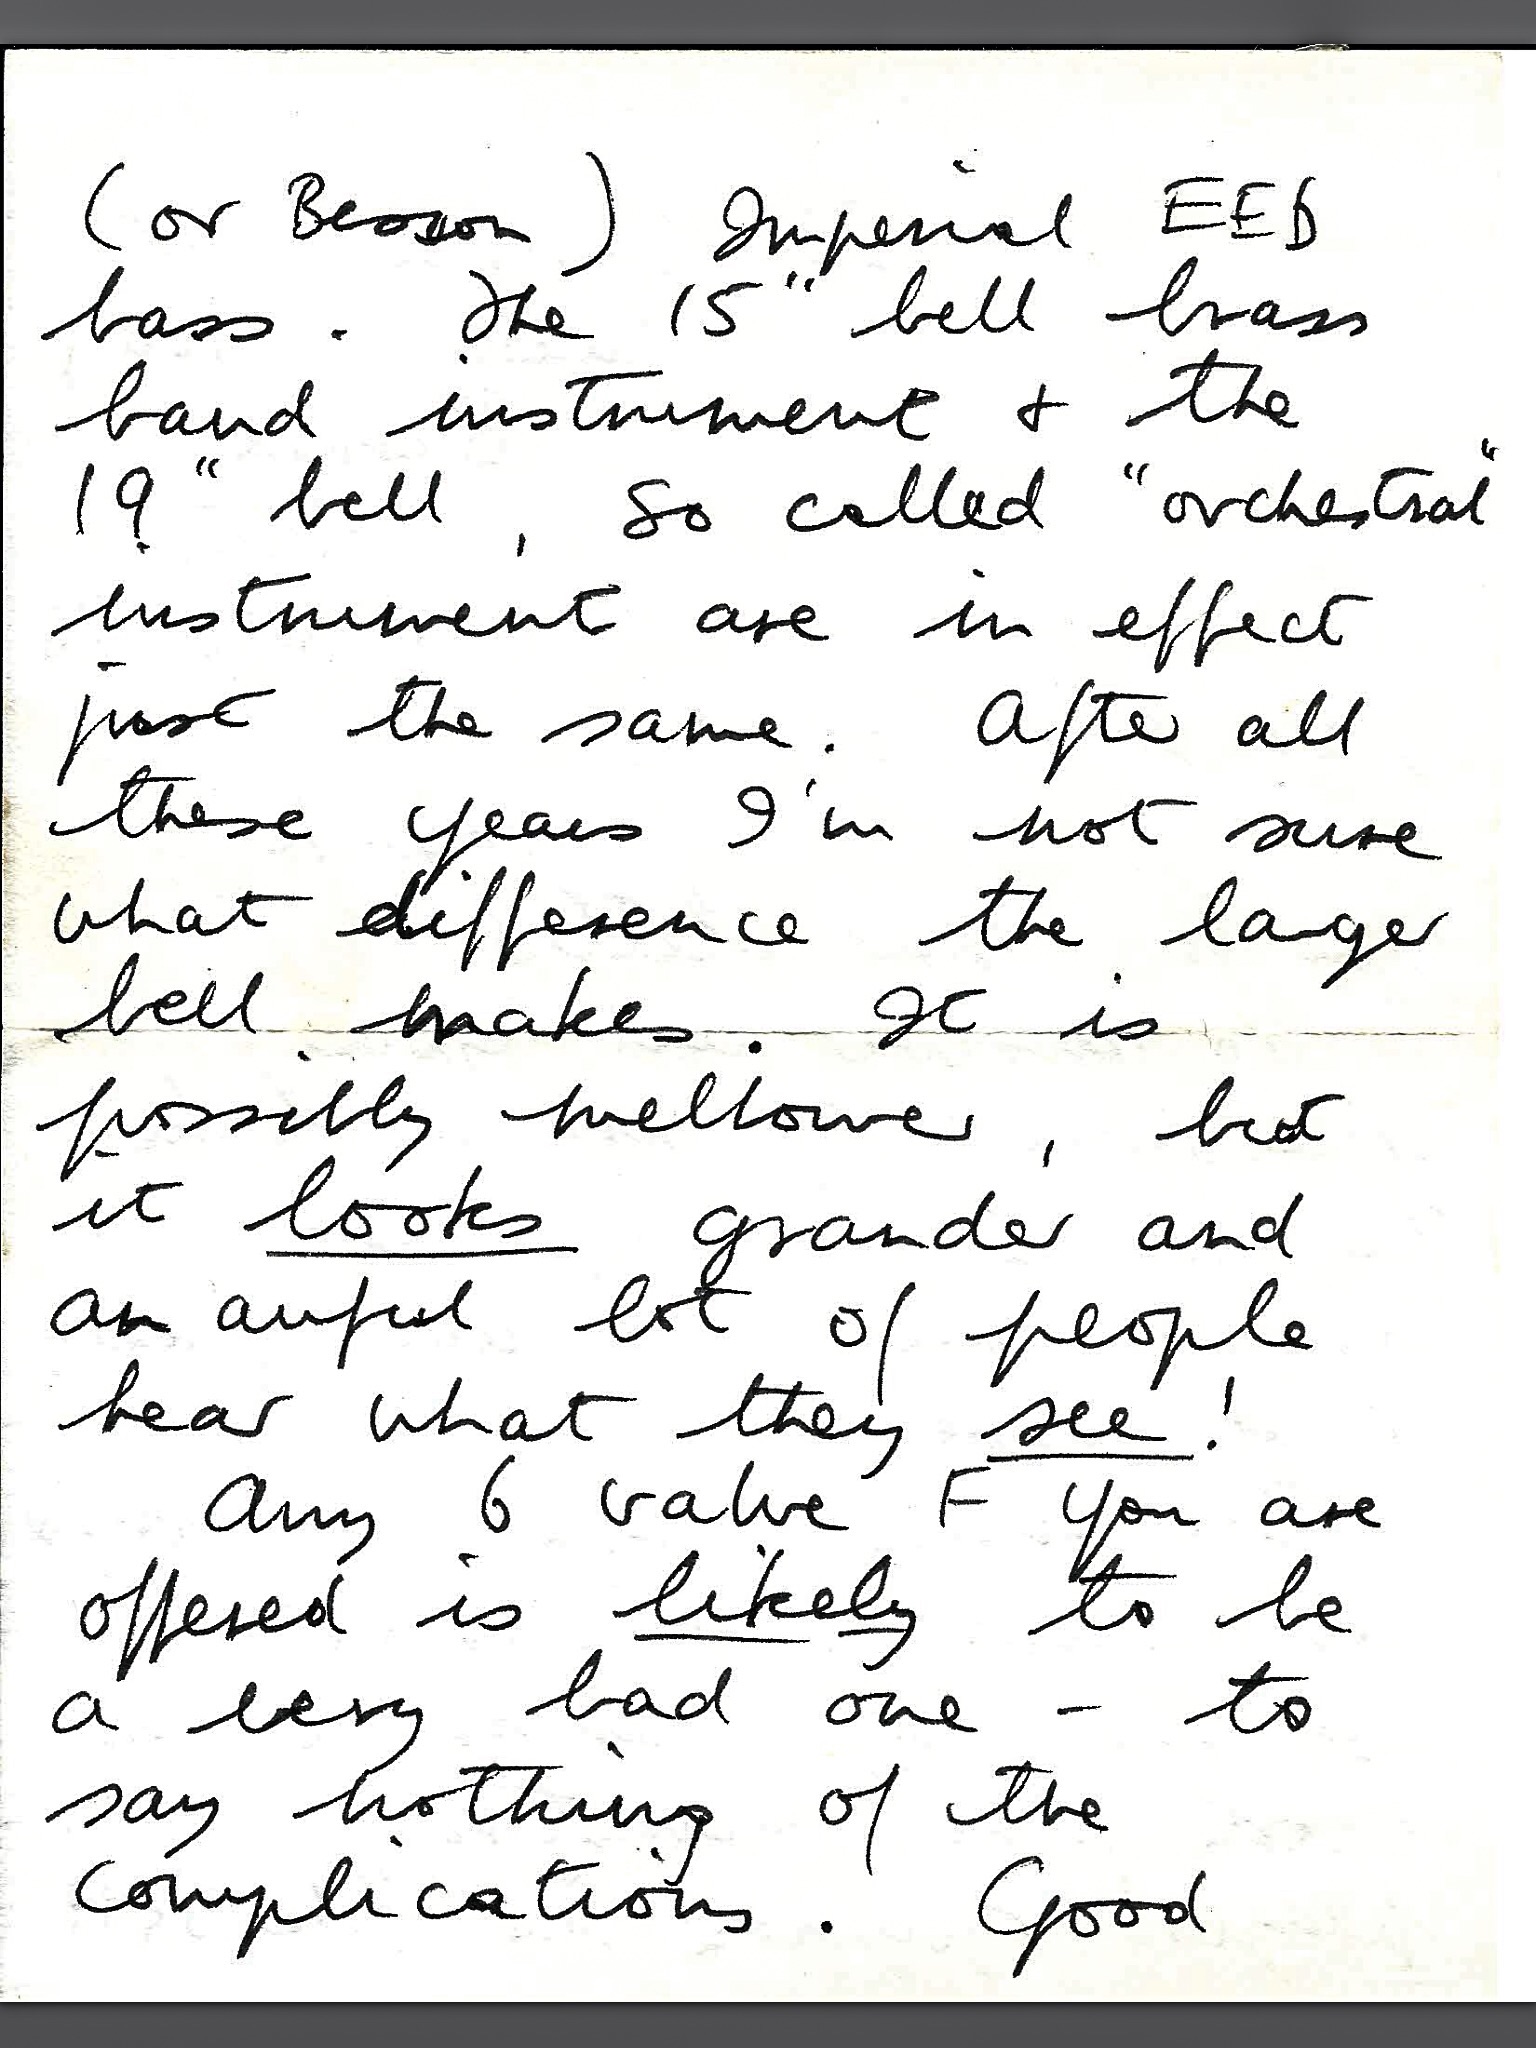 (or Besson) Imperial EE♭
bass. The 15" bell brass
band instrument + the
19" bell, so called "orchestral"
instrument are in effect
just the same. After all
these years I'm not sure
what difference the larger
bell makes. It is
possibly mellower, but
it looks grander and
an awful lot of people
hear what they see!
Any 6 valve F you are
offered is likely to be
a very bad one - to
say nothing of the
complications. Good